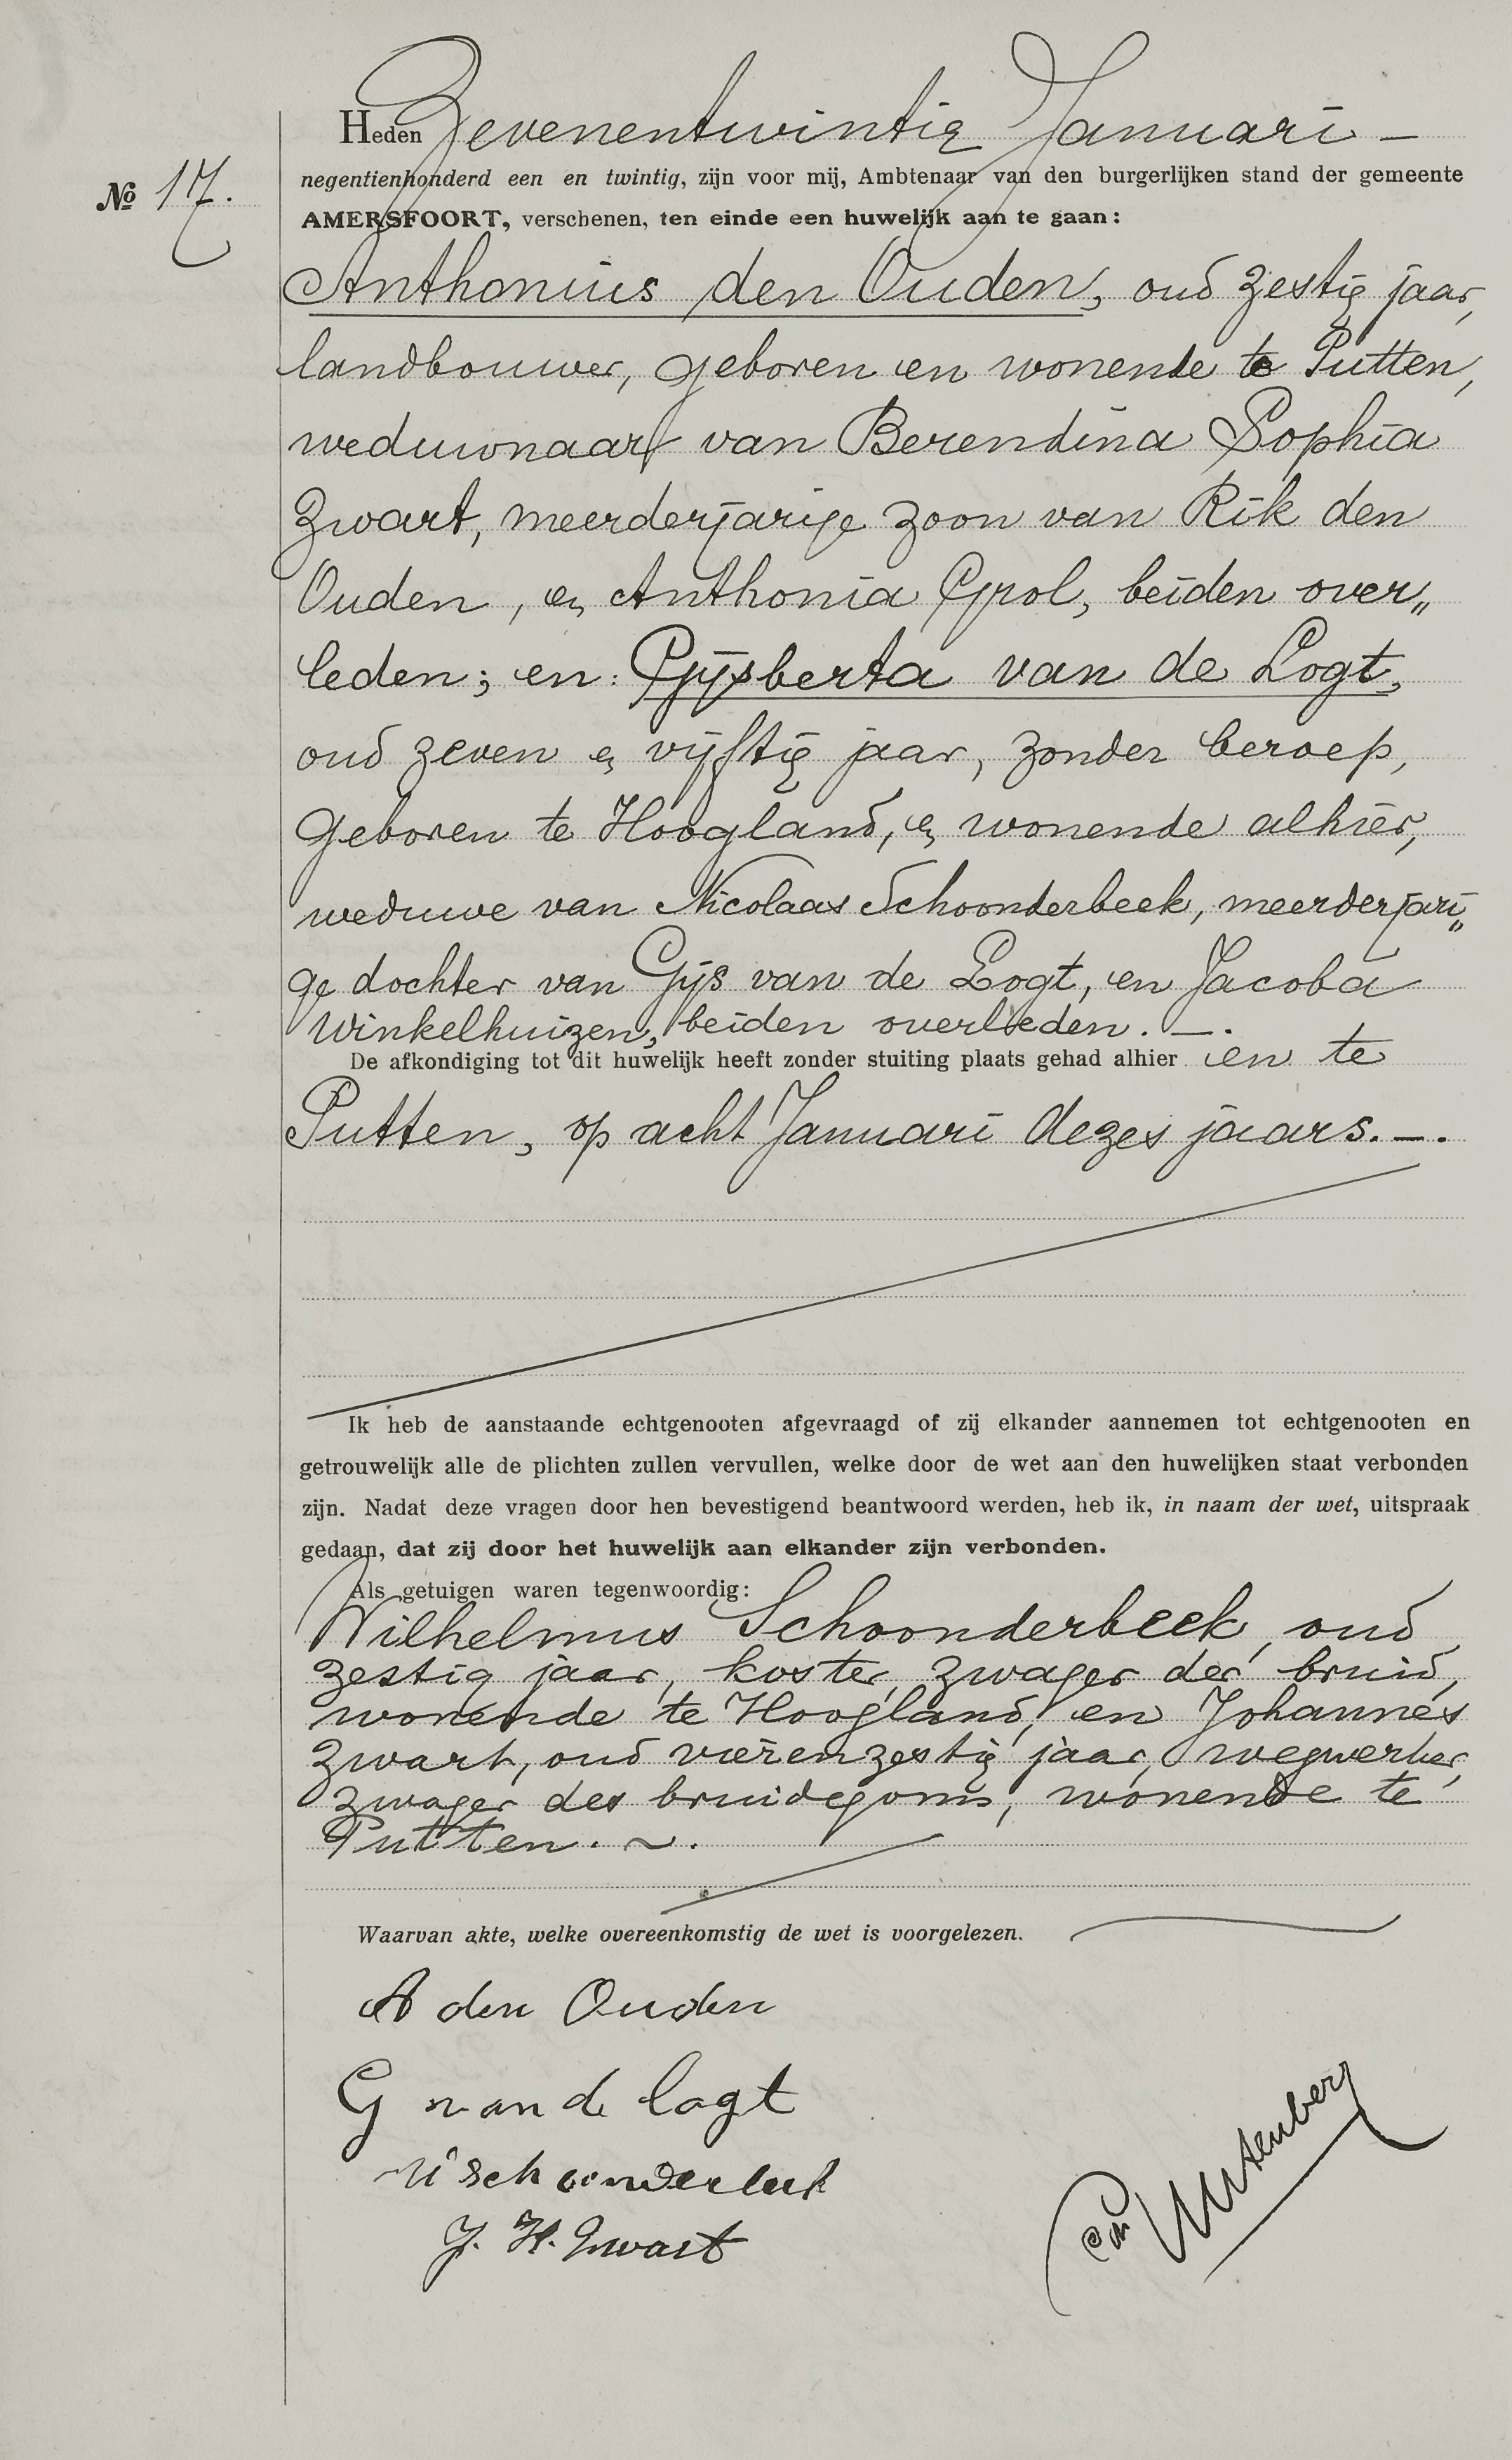 Heden Zevenentwintig Januari –
№ 17.
negentienhonderd een en twintig, zijn voor mij, Ambtenaar van den burgerlijken stand der gemeente
AMERSFOORT, verschenen, ten einde een huwelijk aan te gaan:
Anthonius den Ouden, oud zestig jaar,
landbouwer, geboren en wonende te Putten,
weduwnaar van Berendina Sophia
Zwart, meerderjarige zoon van Rik den
Ouden, en Anthonia Grol, beiden over„
leden; en: Gijsberta van de Logt,
oud zeven en vijftig jaar, zonder beroep,
geboren te Hoogland, en wonende alhier,
weduwe van Nicolaas Schoonderbeek, meerderjari„
ge dochter van Gijs van de Logt, en Jacoba
Winkelhuizen, beiden overleden. —.
De afkondiging tot dit huwelijk heeft zonder stuiting plaats gehad alhier en te
Putten, op acht Januari dezes jaars. —.
Ik heb de aanstaande echtgenooten afgevraagd of zij elkander aannemen tot echtgenooten en
getrouwelijk alle de plichten zullen vervullen, welke door de wet aan den huwelijken staat verbonden
zijn. Nadat deze vragen door hen bevestigend beantwoord werden, heb ik, in naam der wet, uitspraak
gedaan, dat zij door het huwelijk aan elkander zijn verbonden.
Als getuigen waren tegenwoordig:
Wilhelmus Schoonderbeek, oud
zestig jaar, koster, zwager der bruid,
wonende te Hoogland, en Johannes
Zwart, oud vierenzestig jaar, wegwerker,
zwager des bruidegoms, wonende te
Putten. ~.
Waarvan akte, welke overeenkomstig de wet is voorgelezen.
A den Ouden
G van de logt
W Schoonderbeek
J. H. Zwart